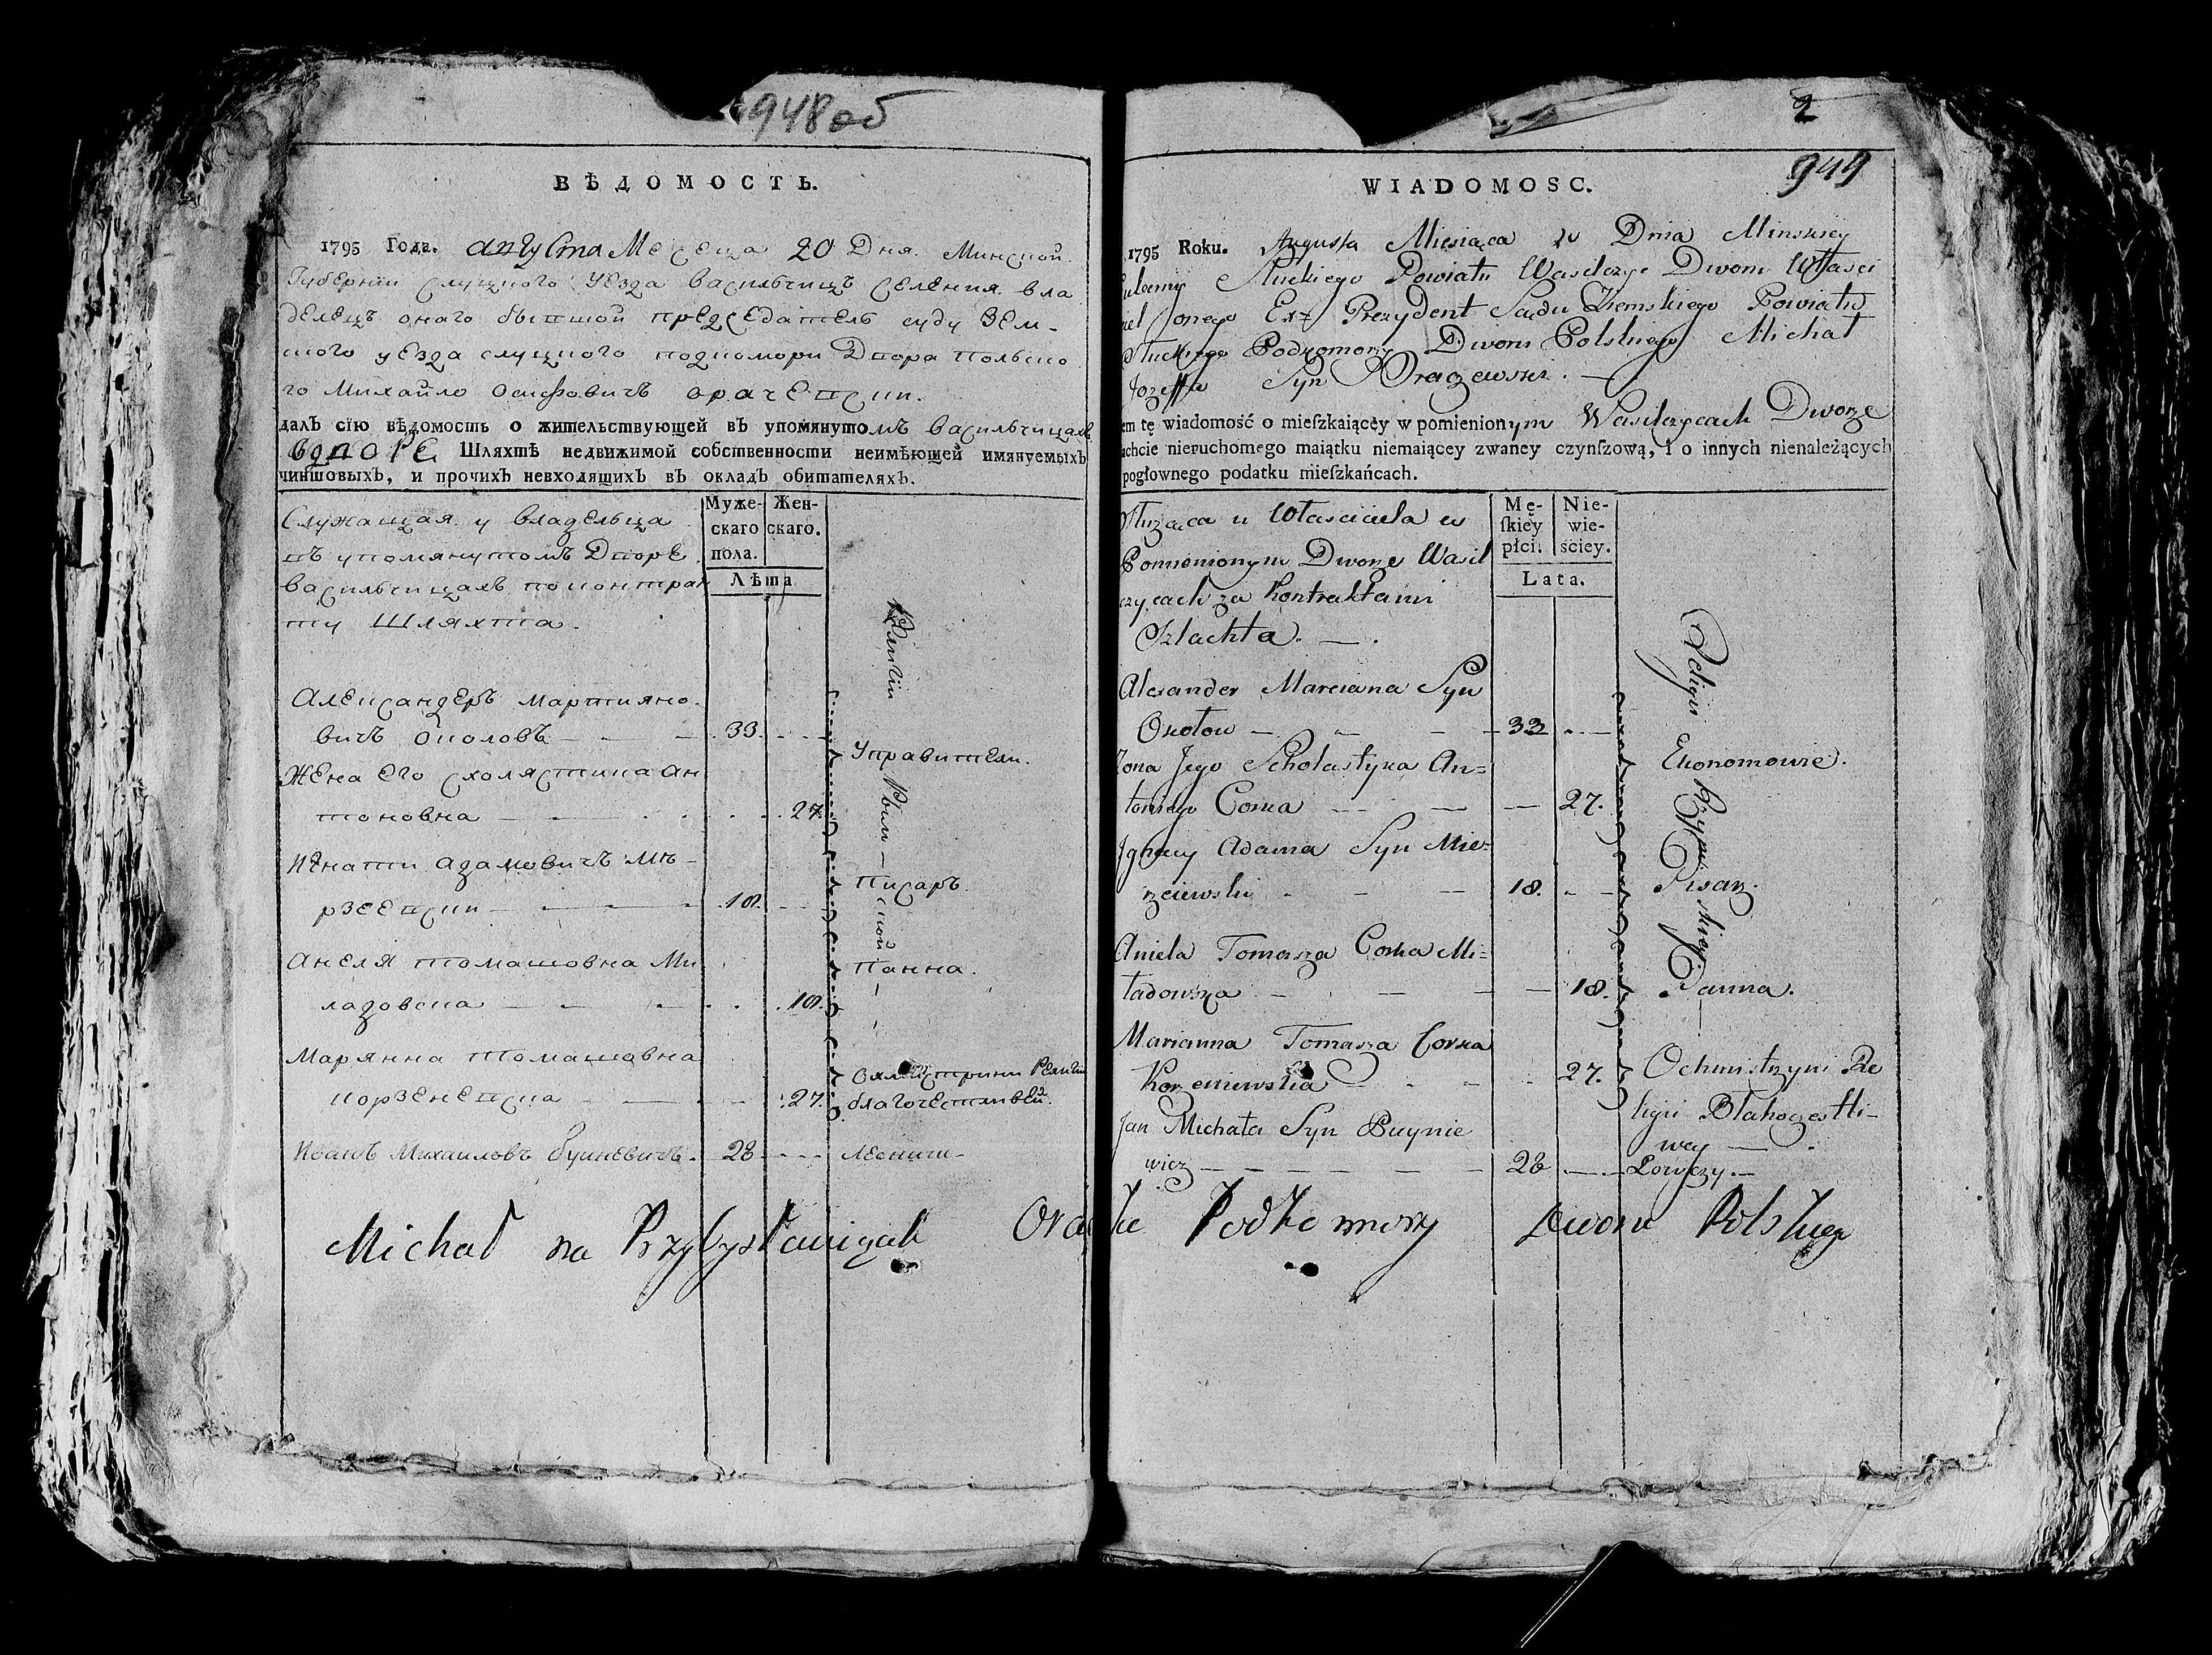 948об
ВѢДОМОСТЬ.
1795 Года. августа Месеца 20 Дня. Минской
Губернии слуцкого уезда василчицъ селения. вла
делецъ оного бывшой председатель суду Зем-
ского уезда слуцкого подкомори Двора Полско
го Михайло осиповичъ
далЪ сїю вѣдомость о жительствующей вЪ упомянутомЪ васильчицахъ
вдворе Шляхтѣ недвижимой собственности неимѣющей имянуемыхЪ
чиншовыхЪ, и прочихЪ невходящихЪ вЪ окладЪ обитателяхЪ.
Служащая у владельца
въ упомянутомъ Дворе
василчицахъ по контрак
ту Шляхта.
Муже- Жен-
скаго скаго.
пола.
Лѣта
Религіи Рым-ской
Александеръ мартияно-
вичъ околовъ 33.
Управители.
Жена Его схолястика ан
тоновна 27
Игнати адамовичъ
18.
Писаръ.
Анеля томашовна Ми
ладовска 18.
Панна.
Марянна томашовна
корзеневска 27.
Религіи
благочестивей.
Иванъ Михаиловъ буиневичъ. 28
Ловчи-
Michał na Przybysławicach
2
949
WIADOMOSC.
1795 Roku. Augusta Miesiąca 20 Dnia Minskiey
Słuckiego Powiatu Wasilczyc Dworu Właści
ciel Jonego Exs Prezydent Sądu Ziemskiego Powiatu
Słuckiego Podkomorzy Dworu Polskiego Michał
Jozeffa Syn
em tę wiadomość o mieſzkaiącéy w pomienionym Wasilczycach Dworze
achcie nieruchomego maiątku niemaiącey zwaney czynſzową, i o innych nienależących
pogłownego podatku mieſzkańcach.
Służąca u Właściciela w
Pomienionym Dworze Wasil
czycach za Kontraktami
Szlachta.
Mę- Nie-
ſkiéy wie-
płci. ściey.
Lata.
Religii Rzyms-kiey
Alexander Marciana Syn
Okołow 33
Ekonomowie.
Żona Jego Scholastyka An=
toniego Corka 27.
Ignacy Adama Syn Mie=
rzeiewski 18.
Pisarz.
Aniela Tomasza Corka Mi=
ładowska 18.
Panna.
Marianna Tomasza Corka
Korzeniewska 27.
Ochmistrzyni Re
ligii Błahoczestli-
wey
Jan Michała Syn Buynie
wicz 28
Łowczy.
Podkomorzy Dworu Polskieg